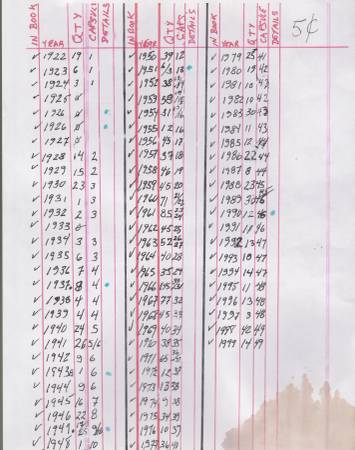 5¢
IN BOOK YEAR QTY CAPSULE DETAILS IN BOOK YEAR QTY CAPS DETAILS IN BOOK YEAR QTY CAPSULE DETAILS
✓ 1922 19 1 ✓ 1950 39 12 ✓ 1979 25 41
✓ 1923 6 1 ✓ 1951 ✓ 1980 19 42
✓ 1924 3 1 ✓ 1952 ✓ 1981 10 43
✓ 1925 ø ✓ 1953 ✓ 1982 10 42
✓ 1926 ø ✓ 1954 ✓ 1983 30
✓ 1926 ø ✓ 1955 12 16 ✓ 1984 11 43
✓ 1927 ø ✓ 1956 43 17 ✓ 1985 12
✓ 1928 14 2 ✓ 1957 37 18 ✓ 1986 22 44
✓ 1929 15 2 ✓ 1958 46 19 ✓ 1987 8 44
✓ 1930 23 3 ✓ 1959 45 20 ✓ 1988 23 45
✓ 1931 1 3 ✓ 1960 71 ✓ 1989 30
✓ 1932 2 3 ✓ 1961 85 ✓ 1990 12
✓ 1933 ø ✓ 1962 45 25 ✓ 1991 18 46
✓ 1934 3 3 ✓ 1963 52 ✓ 1992 13 47
✓ 1935 6 3 ✓ 1964 40 28 ✓ 1993 10 47
✓ 1936 7 4 ✓ 1965 35 29 ✓ 1994 14 47
✓ 1937 8 4 ✓ 1966 ✓ 1995 11 48
✓ 1938 4 4 ✓ 1967 77 32 ✓ 1996 13 48
✓ 1939 4 4 ✓ 1968 45 ✓ 1997 3 48
✓ 1940 24 5 ✓ 1969 40 34 ✓ 1998 42 49
✓ 1941 26 5/6 ✓ 1970 38 35 ✓ 1999 14 49
✓ 1942 9 6 ✓ 1971 65
✓ 1943 1 6 ✓ 1972 12 38
✓ 1944 9 6 ✓ 1973 13 38
✓ 1945 16 7 ✓ 1974 9 38
✓ 1946 22 8 ✓ 1975 34 39
✓ 1947 ✓ 1976 10 37
✓ 1948 1 10 ✓ 1977 36 40